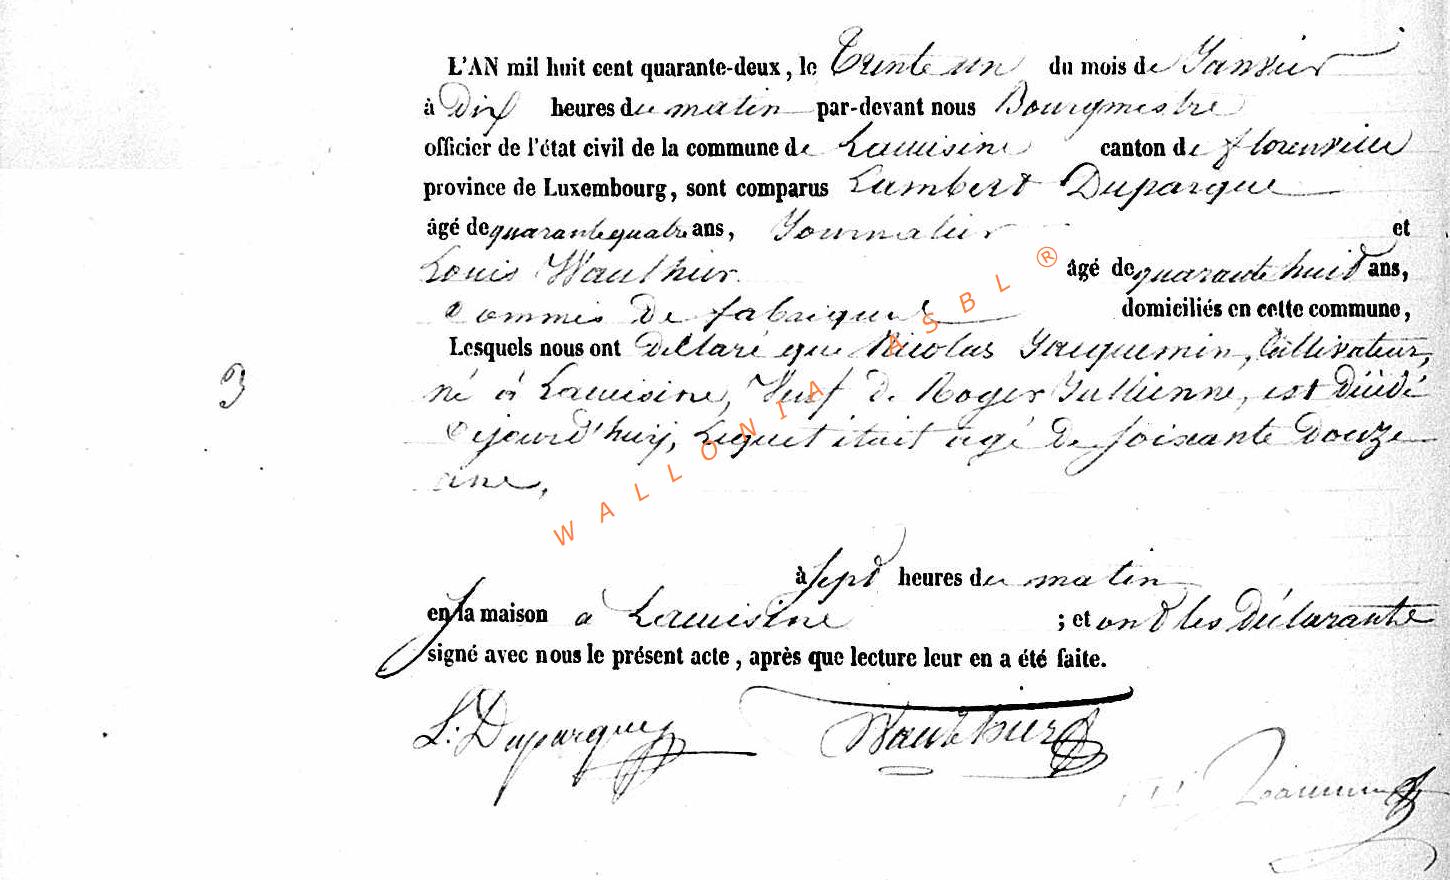 L'AN mil huit cent quarante-deux, le Trente un du mois de Janvier
à Dix heures du matin par-devant nous Bourgmestre
officier de l'état civil de la commune de Lacuisine canton de florenville
province de Luxembourg, sont comparus Lambert Duparque
âgé de quarante quatre ans, Journalier et
Louis Wauthier âgé de quarante huit ans,
Commis de fabriques domiciliés en cette commune,
Lesquels nous ont Déclaré que Nicolas Jacquemin, Cultivateur,
3
né à Lacuisine, Veuf de Roger Jullienne, est Décédé
ajourd'huy, Lequel était agé De soixante Douze
ans,
à sept heures du matin
en sa maison a Lacuisine ; et ont les Déclarants
signé avec nous le présent acte, après que lecture leur en a été faite.
L: Duparque Wauthier
WALLONIA ASBL ®